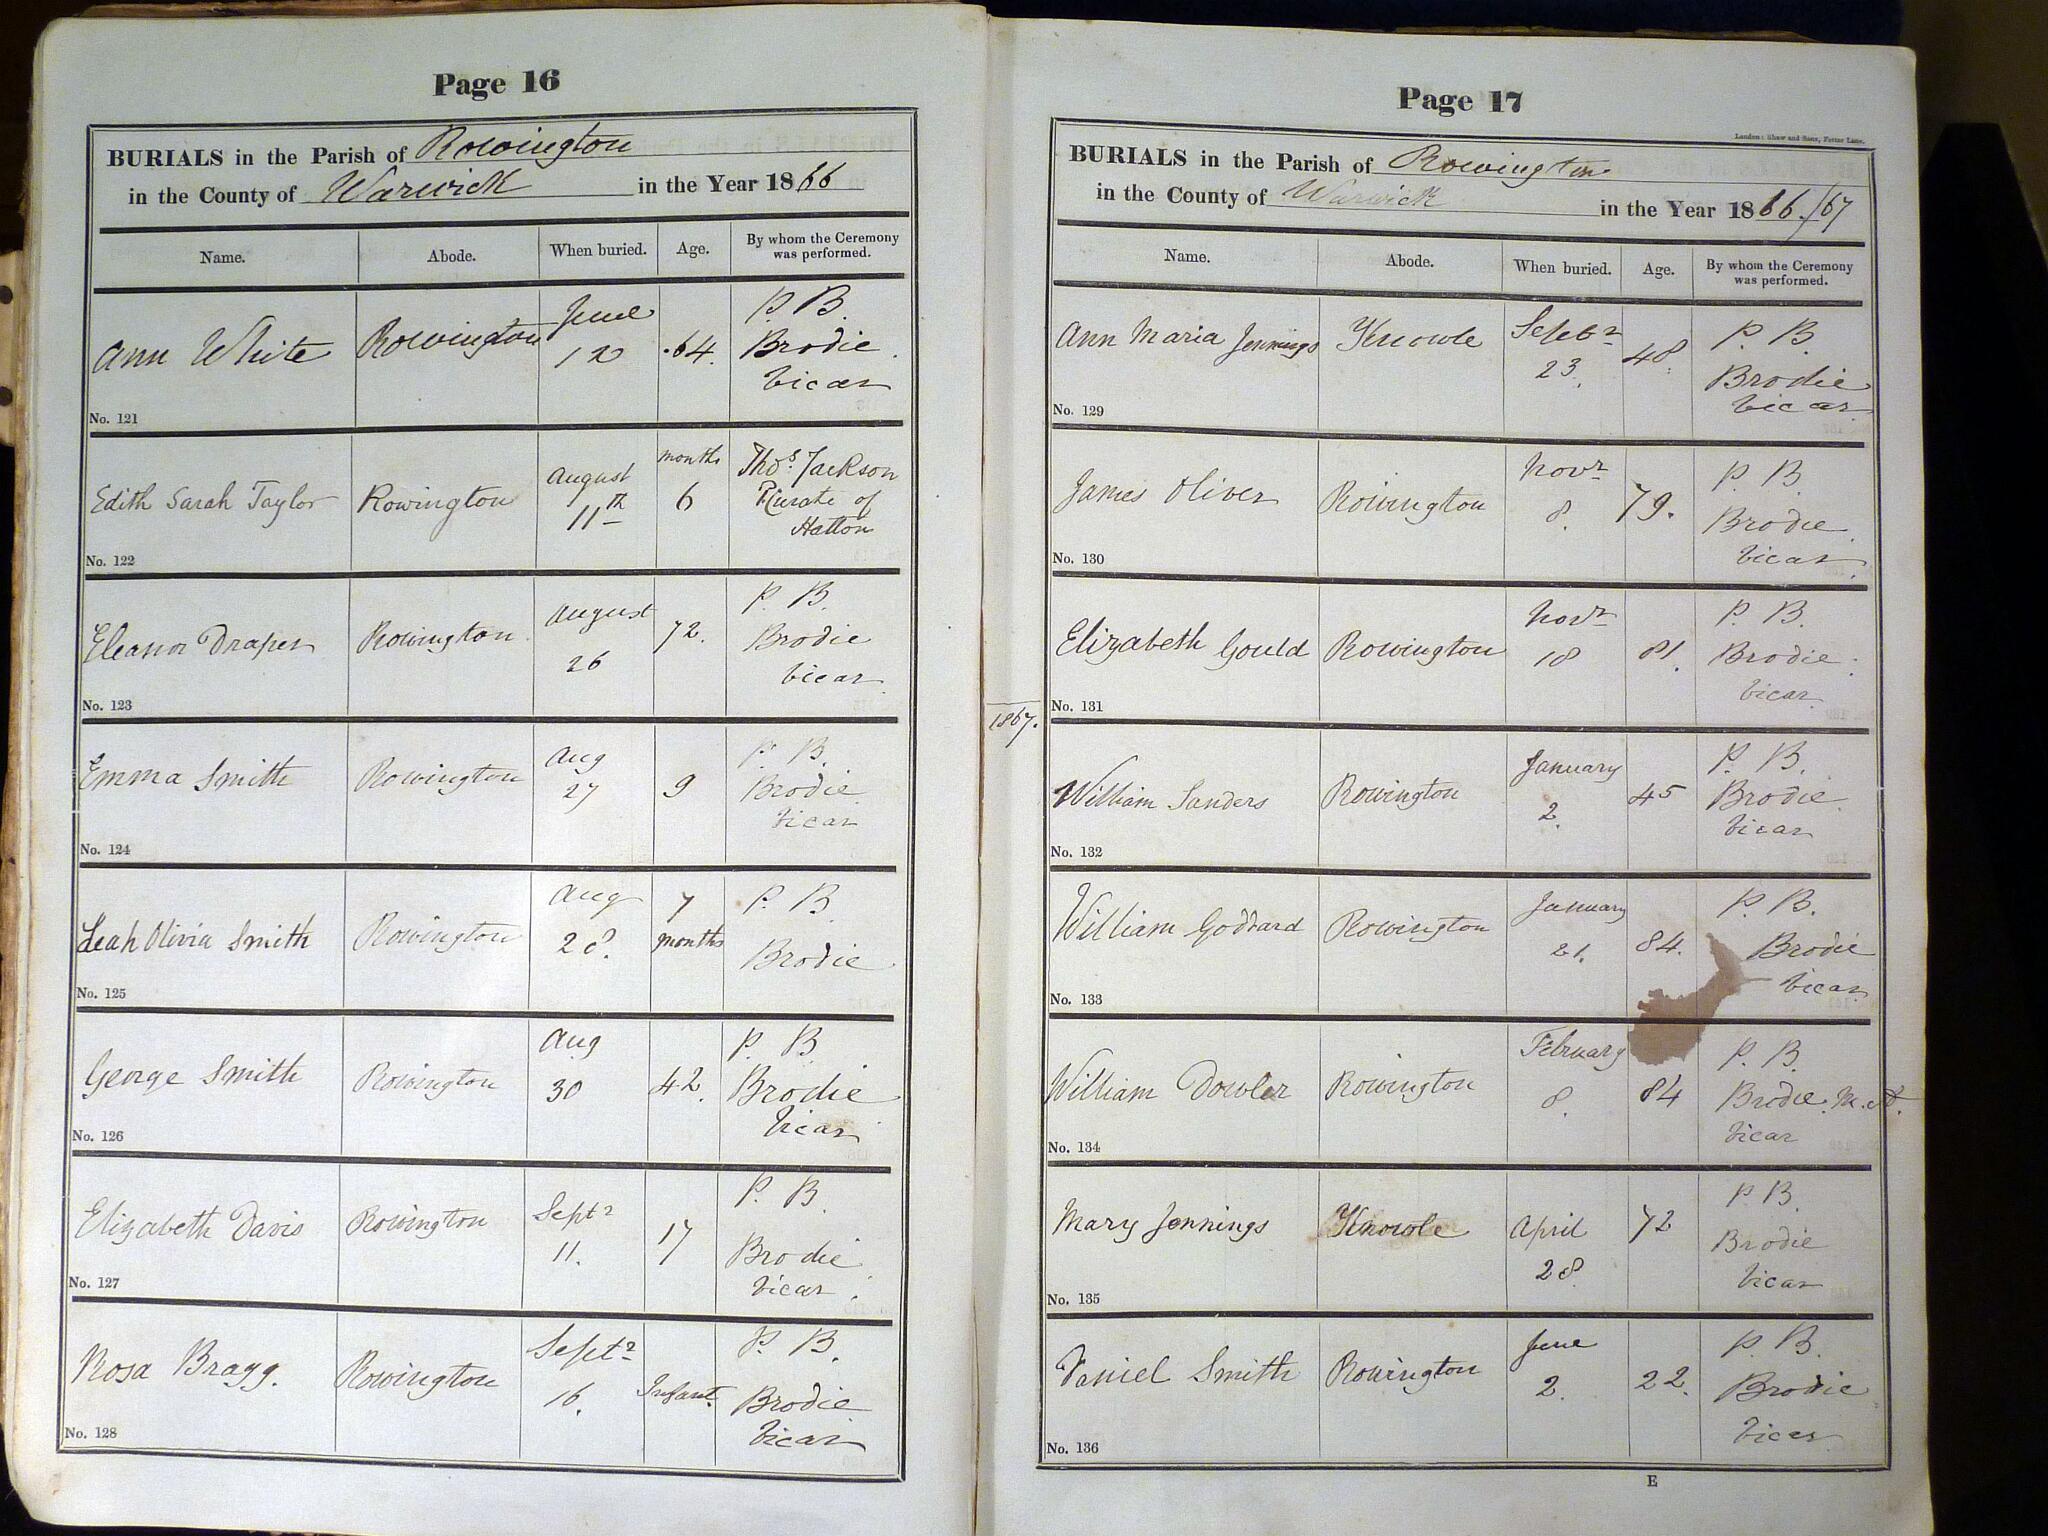 Page 16
BURIALS in the Parish of Rowington
in the County of Warwick in the Year 1866
Name. Abode. When buried. Age. By whom the Ceremony was performed.
Ann White Rowington June 12 .64. P. B. Brodie. Vicar
No. 121
Edith Sarah Taylor Rowington August 11th months 6 Thos. Jackson Curate of Hatton
No. 122
Eleanor Draper Rowington August 26 72. P. B. Brodie Vicar
No. 123
Emma Smith Rowington Aug 27 9 P. B. Brodie Vicar
No. 124
Leah Olivia Smith Rowington Aug 28. 7 months P. B Brodie
No. 125
George Smith Rowington Aug 30 42. P. B. Brodie Vicar
No. 126
Elizabeth Davis Rowington Septr 11. 17 P. B. Brodie Vicar.
No. 127
Rosa Bragg. Rowington Septr 16. Infant. P. B. Brodie Vicar
No. 128
Page 17
London: Shaw and Sons, Fetter Lane.
BURIALS in the Parish of Rowington
in the County of Warwick in the Year 1866./67
Name. Abode. When buried. Age. By whom the Ceremony was performed.
Ann Maria Jennings Knowle Septr 23. 48. P. B. Brodie Vicar
No. 129
James Oliver Rowington Novr 8. 79. P. B. Brodie. Vicar.
No. 130
Elizabeth Gould Rowington Novr 18 81. P. B. Brodie. Vicar
No. 131
1867.
William Sanders Rowington January 2. 45 P. B. Brodie. Vicar
No. 132
William Goddard Rowington January 21. 84. P. B. Brodie Vicar
No. 133
William Dowler Rowington February 8. 84 P. B. Brodie. M.A. Vicar
No. 134
Mary Jennings Knowle April 28 72 P. B. Brodie Vicar
No. 135
Daniel Smith Rowington June 2. 22. P. B. Brodie Vicar
No. 136
E